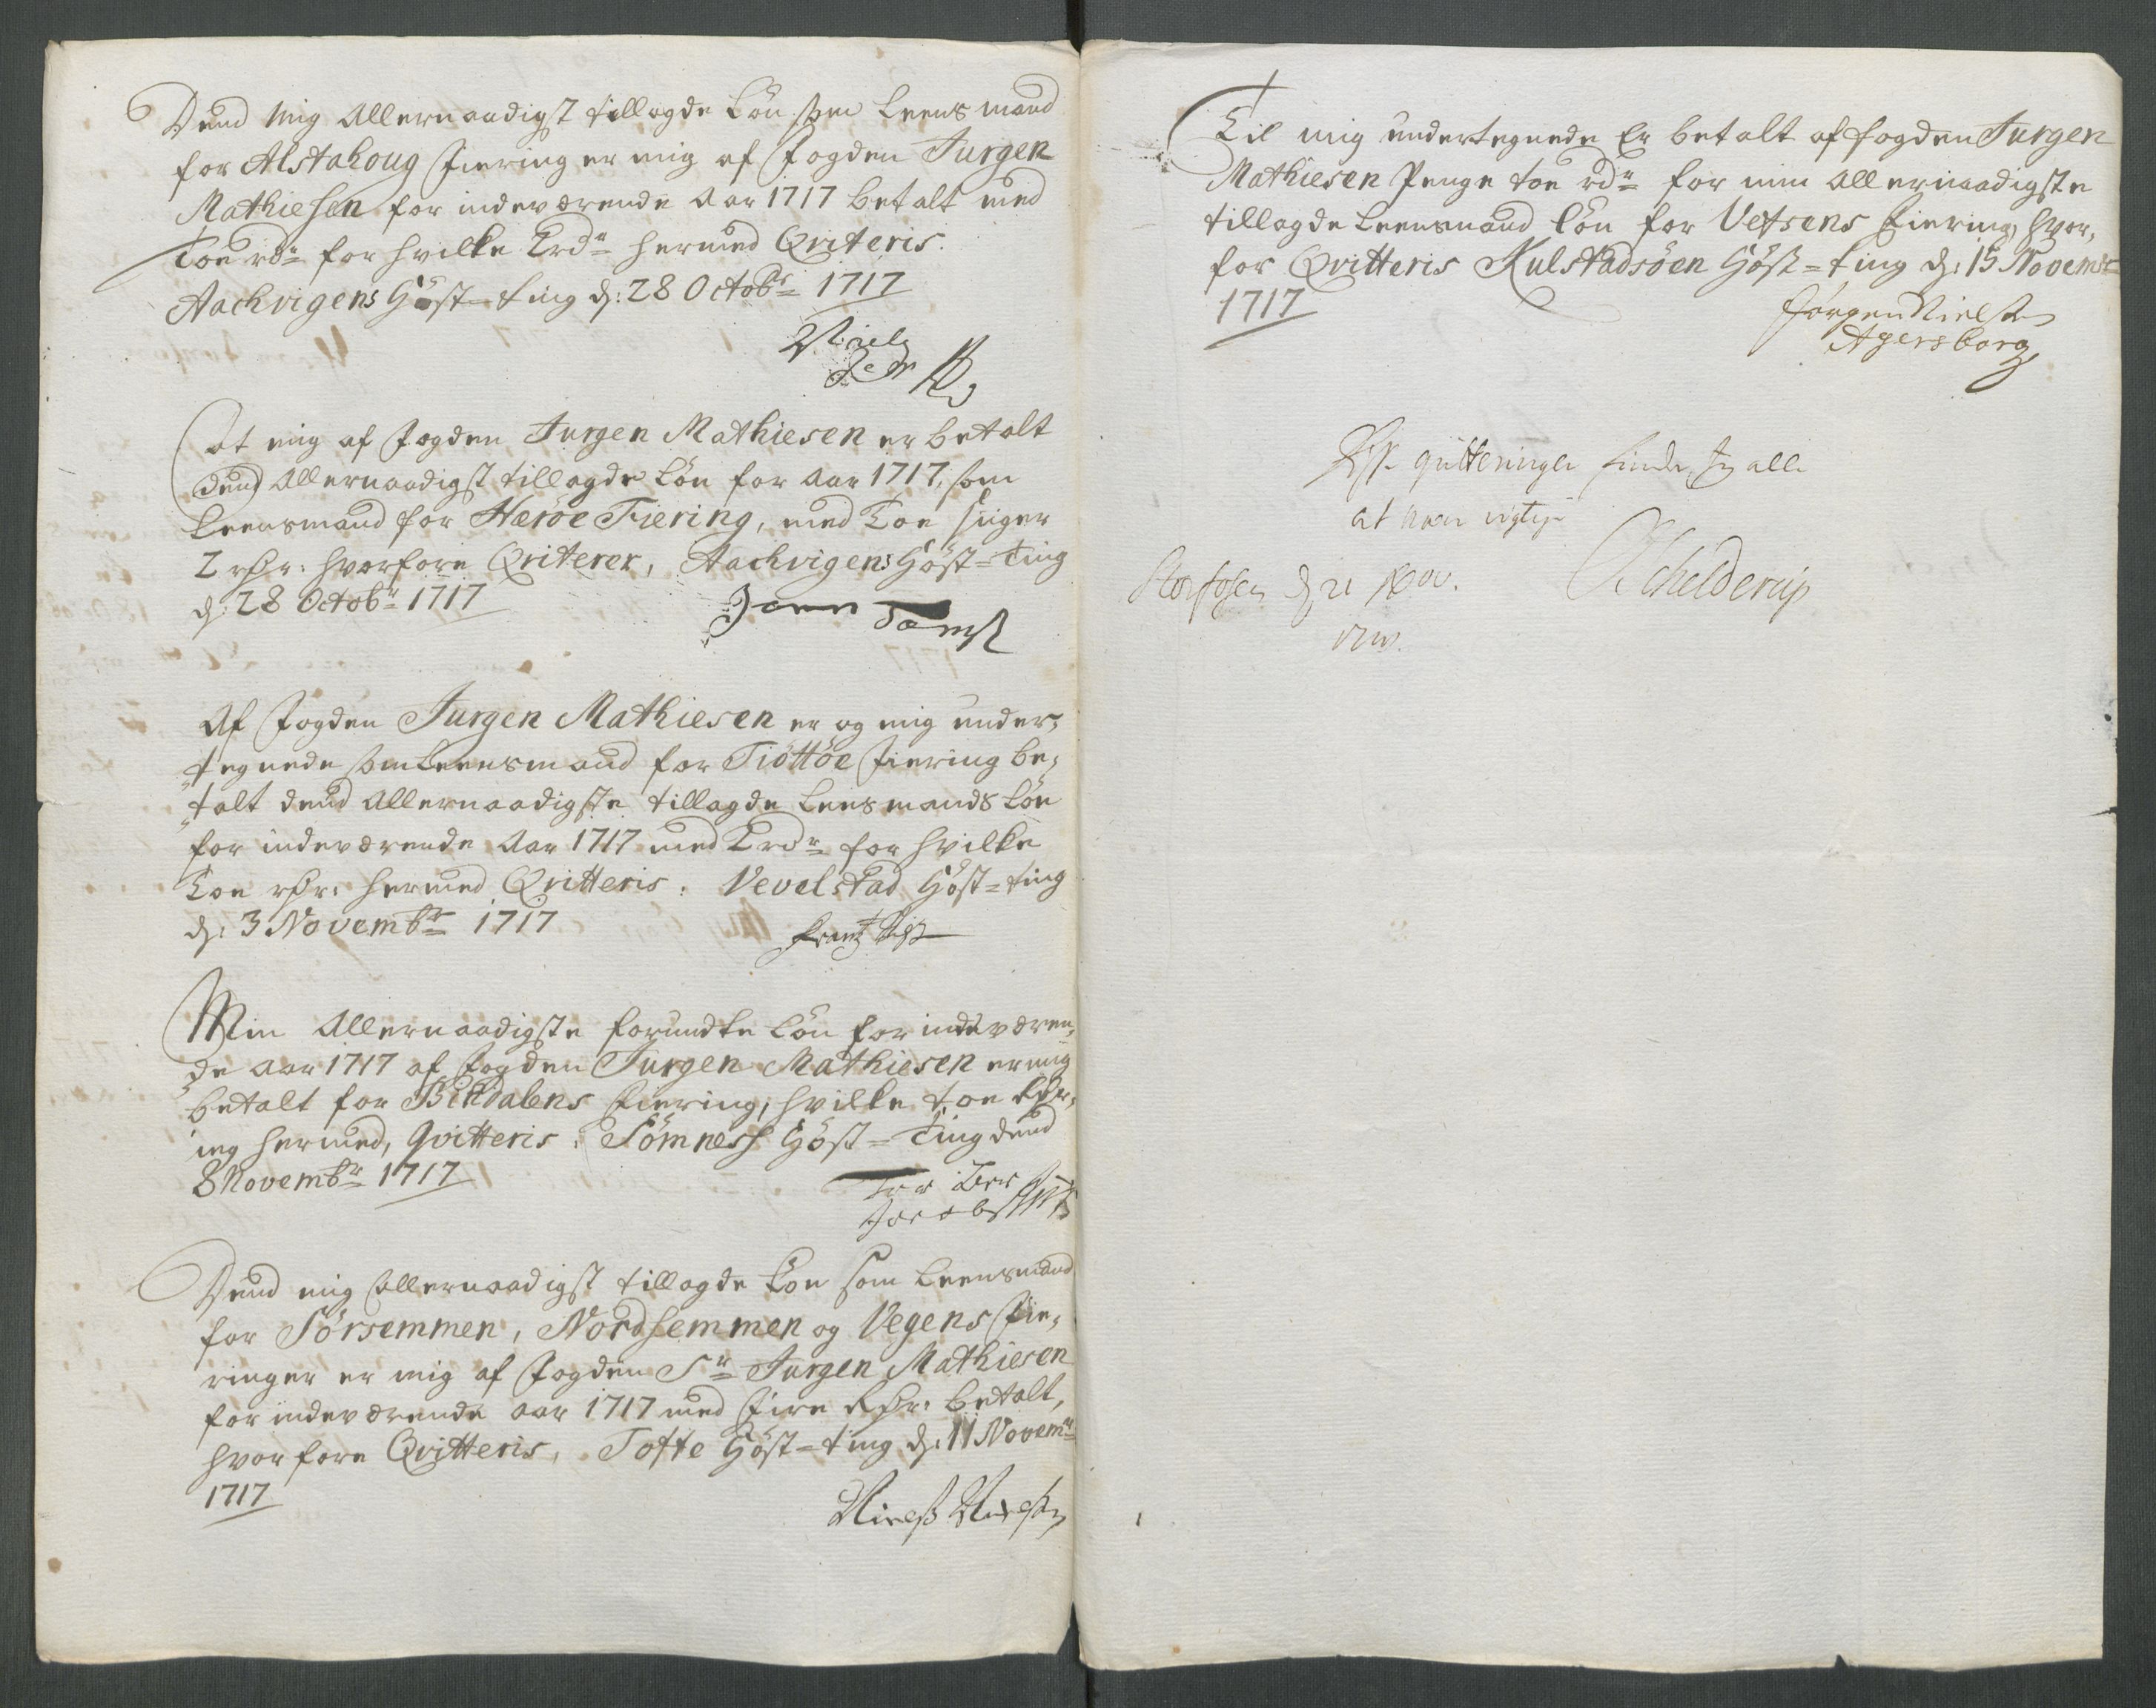 Dend Mig Allernaadigst tillagde Løn som Leensmand
for Alstahoug Fiering er mig af Fogden Jurgen
Mathiesen for indeværende Aar 1717 betalt med
Toe rdr for hvilke 2 rdr hermed Qviteris.
Aachvigens Høst-Ting d: 28 Octobr 1717
Niels
At mig af Fogden Jurgen Mathiesen er betalt
dend Allernaadigst tillagde Løn for Aar 1717, som
Leensmand for Herøe Fiering, med Toe siger
2 rdr: hvorfore Qviterer, Aachvigens Høst-Ting
d: 28 Octobr 1717
Af Fogden Jurgen Mathiesen er og mig under-
tegnede som Leensmand for Tiøttøe Fiering be-
talt dend Allernaadigste tillagde Leensmands Løn
for indeværende Aar 1717 med 2 rdr for hvilke
Toe rdr: hermed Qvitteris. Vevelstad Høst-Ting
d: 3 Novembr 1717
Frantz
Min Allernaadigste forundte Løn for indeværen-
de Aar 1717 af Fogden Jurgen Mathiesen er mig
betalt for Bindalens Fiering, hvilke toe rdr:
ieg hermed, Qvitteris. Sømness Høst-Ting dend
8 Novembr 1717
Jacobs
Dend mig Allernaadigst tillagde Løn som Leensmand
for Sørsemmen, Nordhemmen og Vegens Fie-
ringer er mig af Fogden Sr Jurgen Mathiesen
for indeværende aar 1717 med Fire Rdr: betalt,
hvorfore Qvitteris, Tofte Høst-Ting d: 11 Novemr
1717
Nielß Nielßen
Til mig undertegnede Er betalt af fogden Jurgen
Mathiesen Penge toe rdr for min Allernaadigste
tillagde Leensmand Løn for Vefsens Fiering, hvor-
for Qvitteris Kulstadsøen Høst-Ting d: 15 Novembr
1717
Jørgen Nielsen
Agersborg
qvitteringer finder Jeg alle
at være rigtige
d 21 Nov.
Schelderup